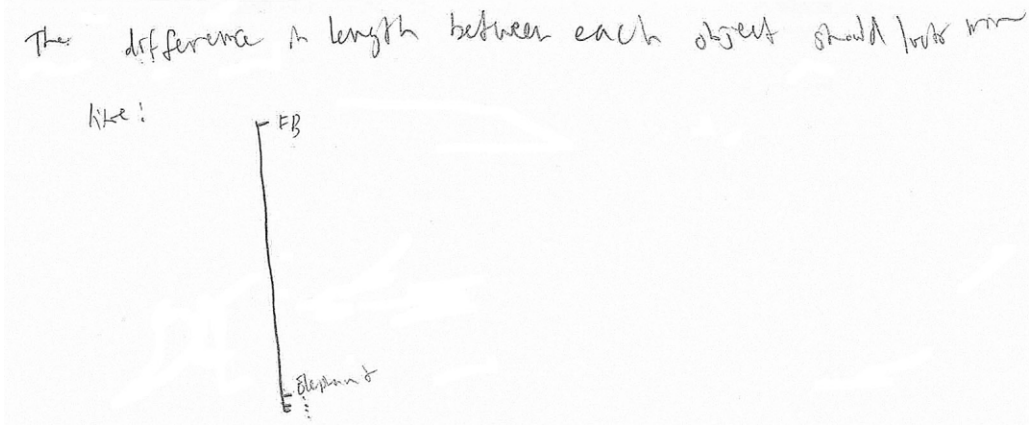 The difference in length between each object should look more
like:
FB
Elephant